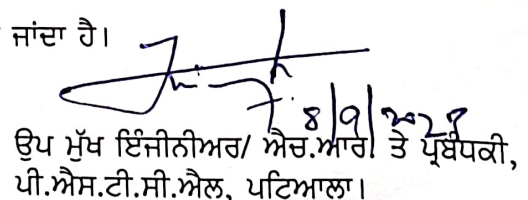 ਜਾਂਦਾ ਹੈ।
8/9/202
ਉਪ ਮੁੱਖ ਇੰਜੀਨੀਅਰ/ ਐਚ.ਆਰ. ਤੇ ਪ੍ਰਬੰਧਕੀ,
ਪੀ.ਐਸ.ਟੀ.ਸੀ.ਐਲ, ਪਟਿਆਲਾ।